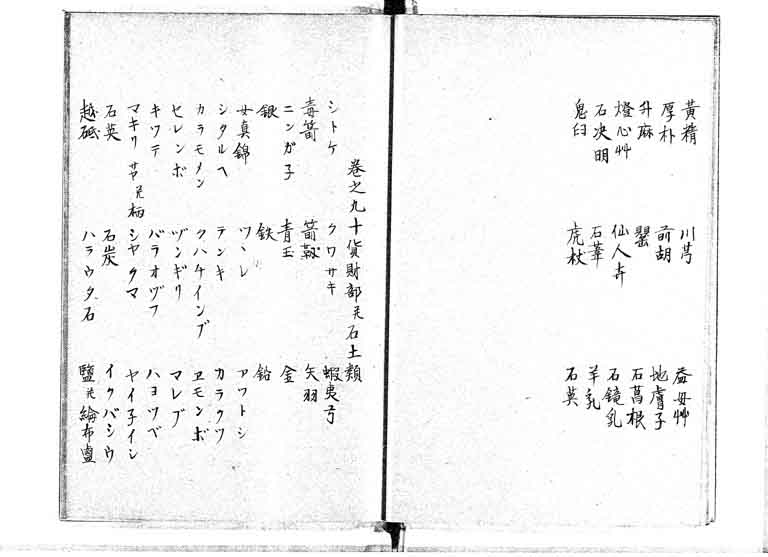 黃精 川芎 益母艸
厚朴 前胡 地膚子
升麻 罌 石菖根
燈心艸 仙人卉 石鏡乳
石决明 石葦 羊乳
鬼臼 虎杖 石英
巻之九十貨財部 石土類
シトケ クワサキ 蝦夷弓
毒箭 箭靫 矢羽
ニンガ子 青玉 金
銀 鉄 鉛
女真錦 ツヽレ アツトシ
シタルヘ テンキ カラクツ
カラモメン クハチインプ ヱモンボ
セレンボ ヅンギリ マレブ
キワテ バラオヅフ ハヨツベ
マキリ サヤ 柄 シヤクマ ヤイ子イシ
石英 石炭 イクバシウ
越砥 ハラウタ石 鹽 綸布鹽